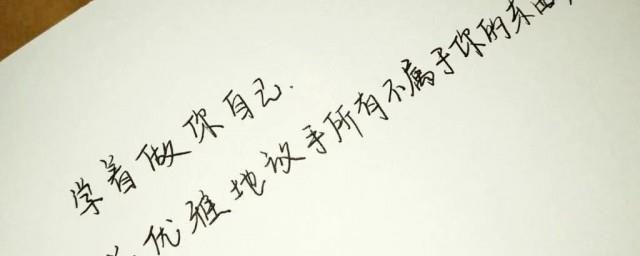 学着做你自己.
优雅地放手所有不属于你的东西